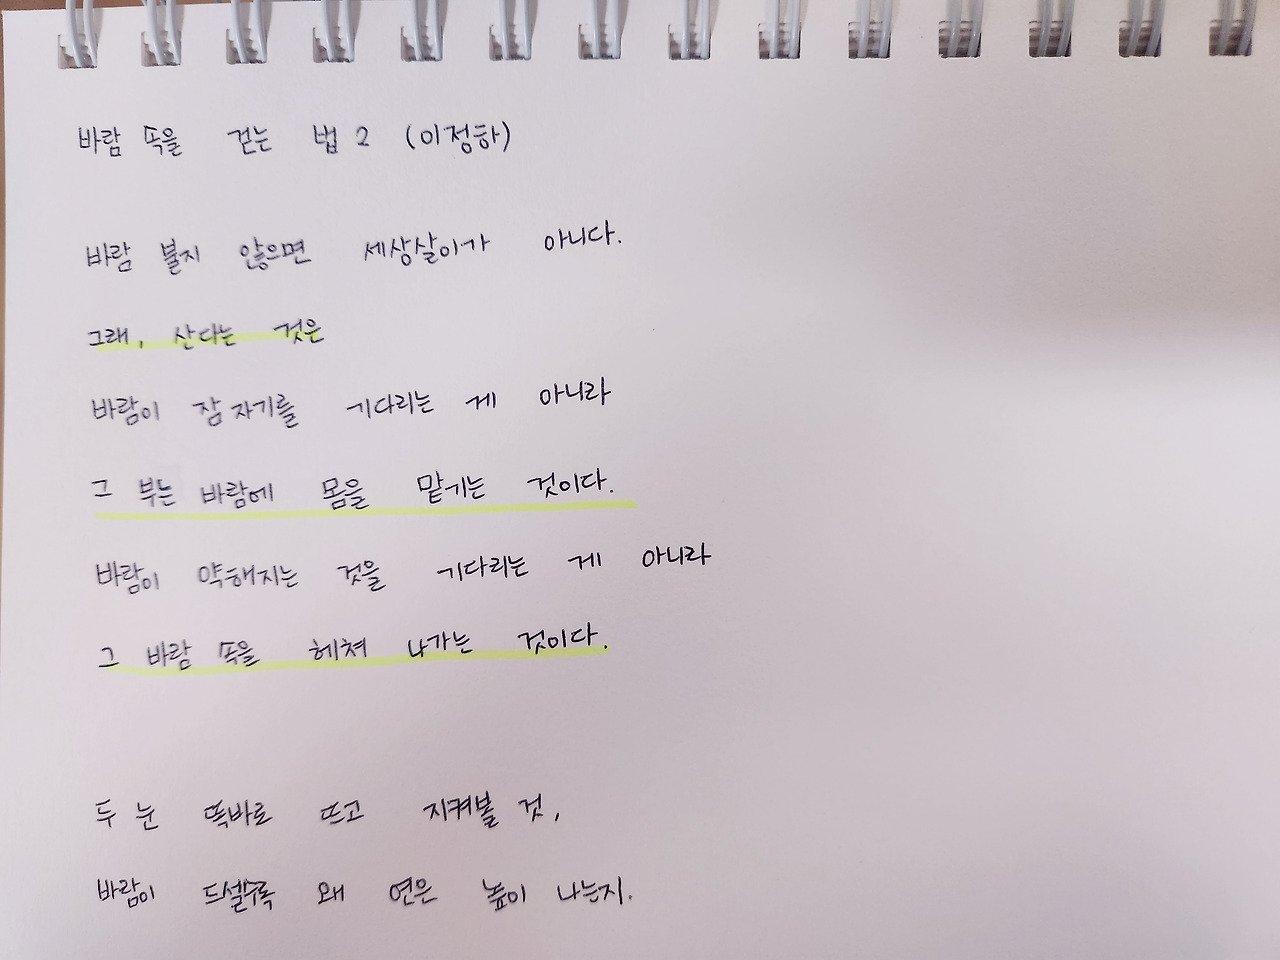 바람 속을 걷는 법 2 (이정하)
바람 불지 않으면 세상살이가 아니다.
그래, 산다는 것은
바람이 잠 자기를 기다리는 게 아니라
그 부는 바람에 몸을 맡기는 것이다.
바람이 약해지는 것을 기다리는 게 아니라
그 바람 속을 헤쳐 나가는 것이다.
두 눈 똑바로 뜨고 지켜볼 것,
바람이 드셀수록 왜 연은 높이 나는지.